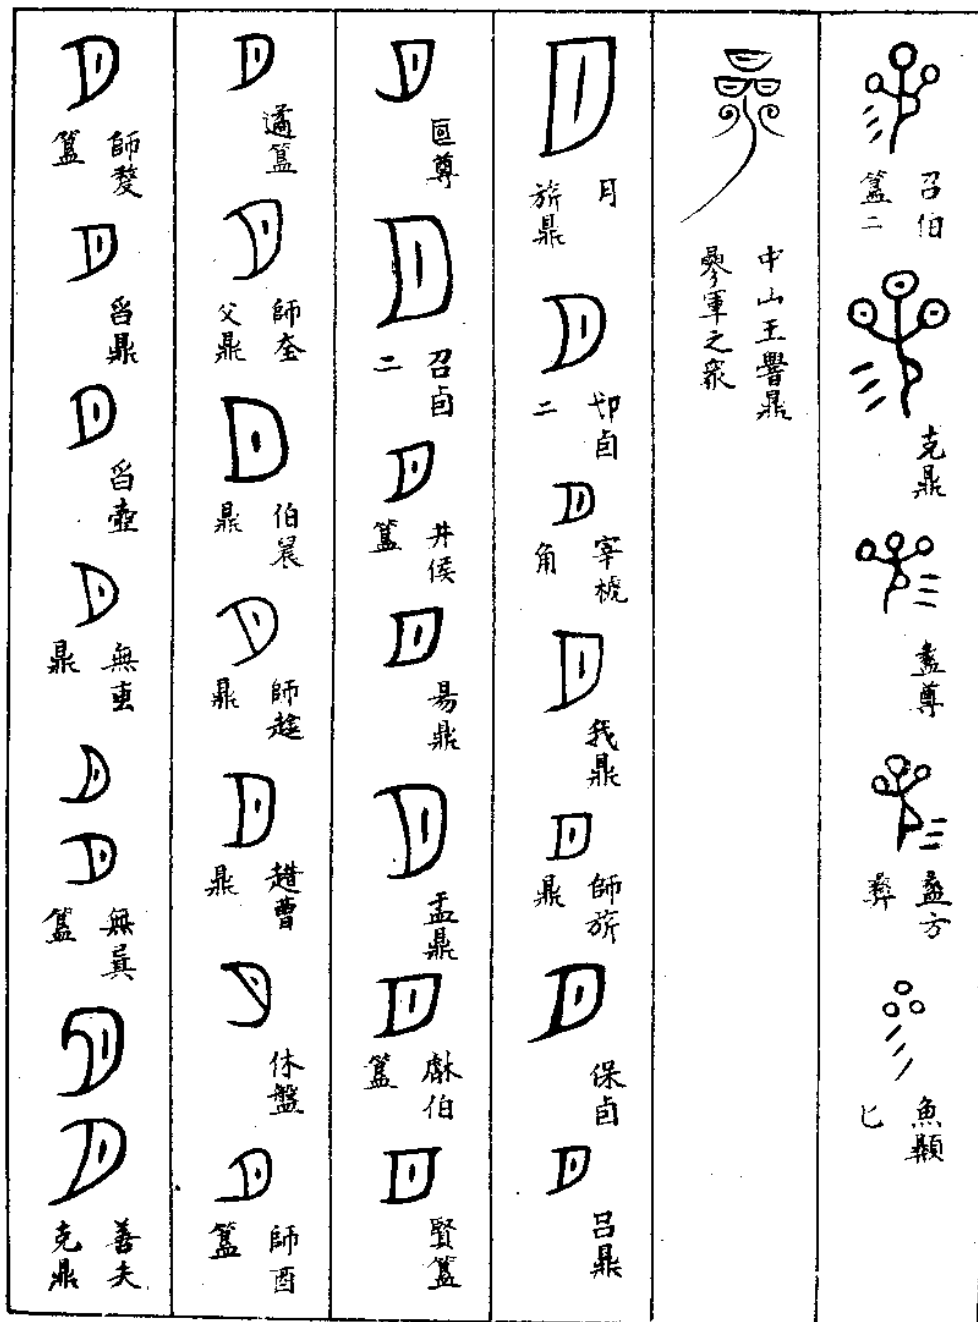 召伯
簋二
克鼎
盠尊
盠方
彝
魚顚
匕
中山王䁐鼎
曑軍之衆
月
旂鼎
卣
二
宰椃
角
我鼎
師旂
鼎
保卣
吕鼎
尊
召卣
二
井侯
簋
昜鼎
盂鼎
獻伯
簋
賢簋
遹簋
師奎
父鼎
伯晨
鼎
師趛
鼎
趞曹
鼎
休盤
師酉
簋
師
簋
舀鼎
舀壺
無叀
鼎
無㠱
簋
善夫
克鼎